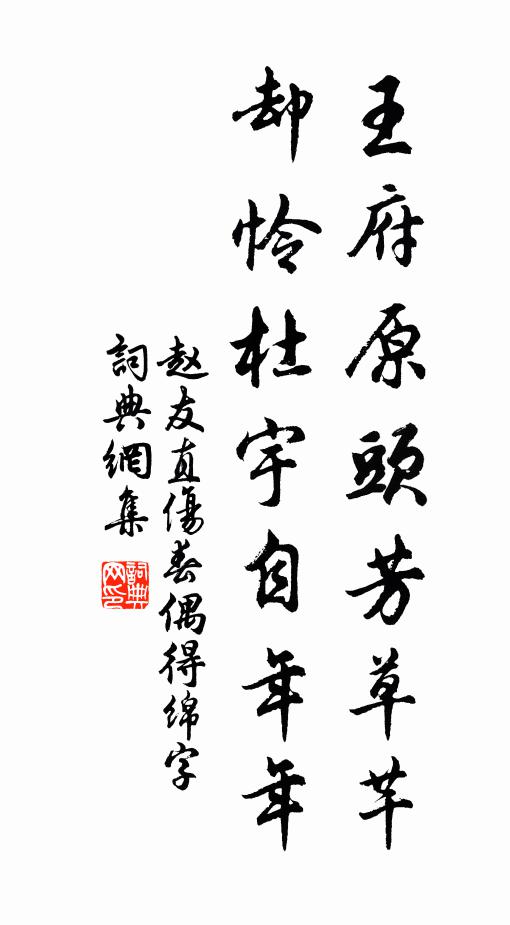 王府原頭芳草芊
却怜杜宇自年年
赵友直傷春偶得绵字
詞典網集
詞典
网印